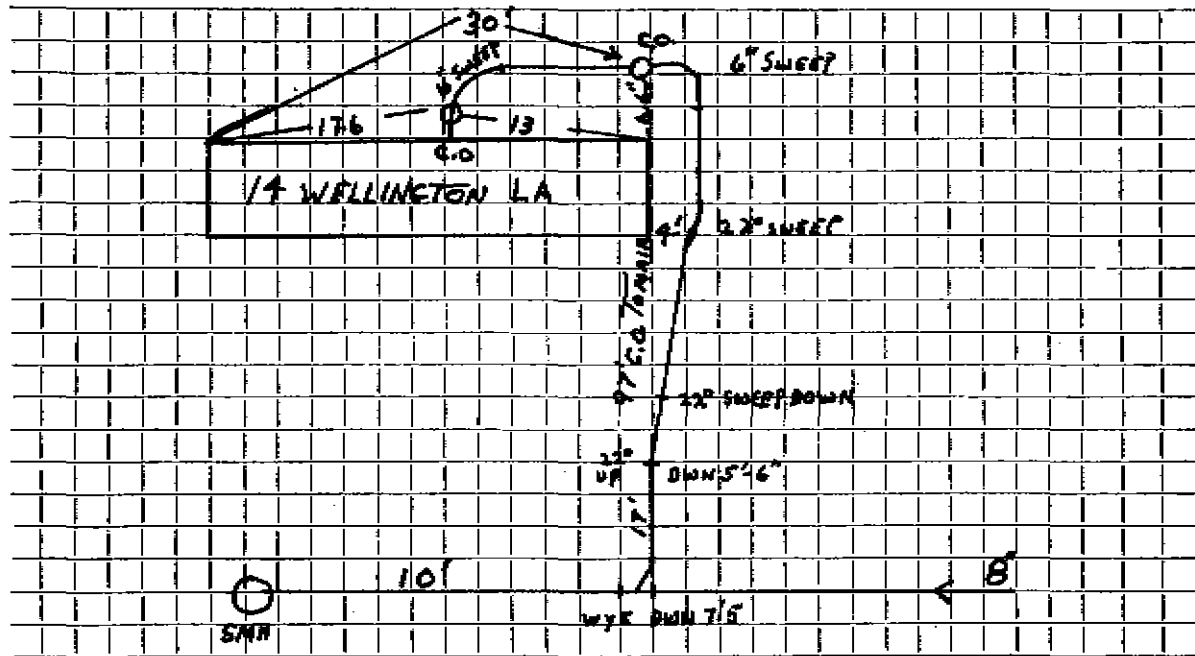 30'
C.O.
6" SWEEP
6" SWEEP
17.6
13
C.O
14 WELLINGTON LA
4'
22° SWEEP
97' C.O TO MAIN
22° SWEEP DOWN
22° UP
DWN 5'-6"
17'
10'
8"
SMH
WYE DWN 7'5